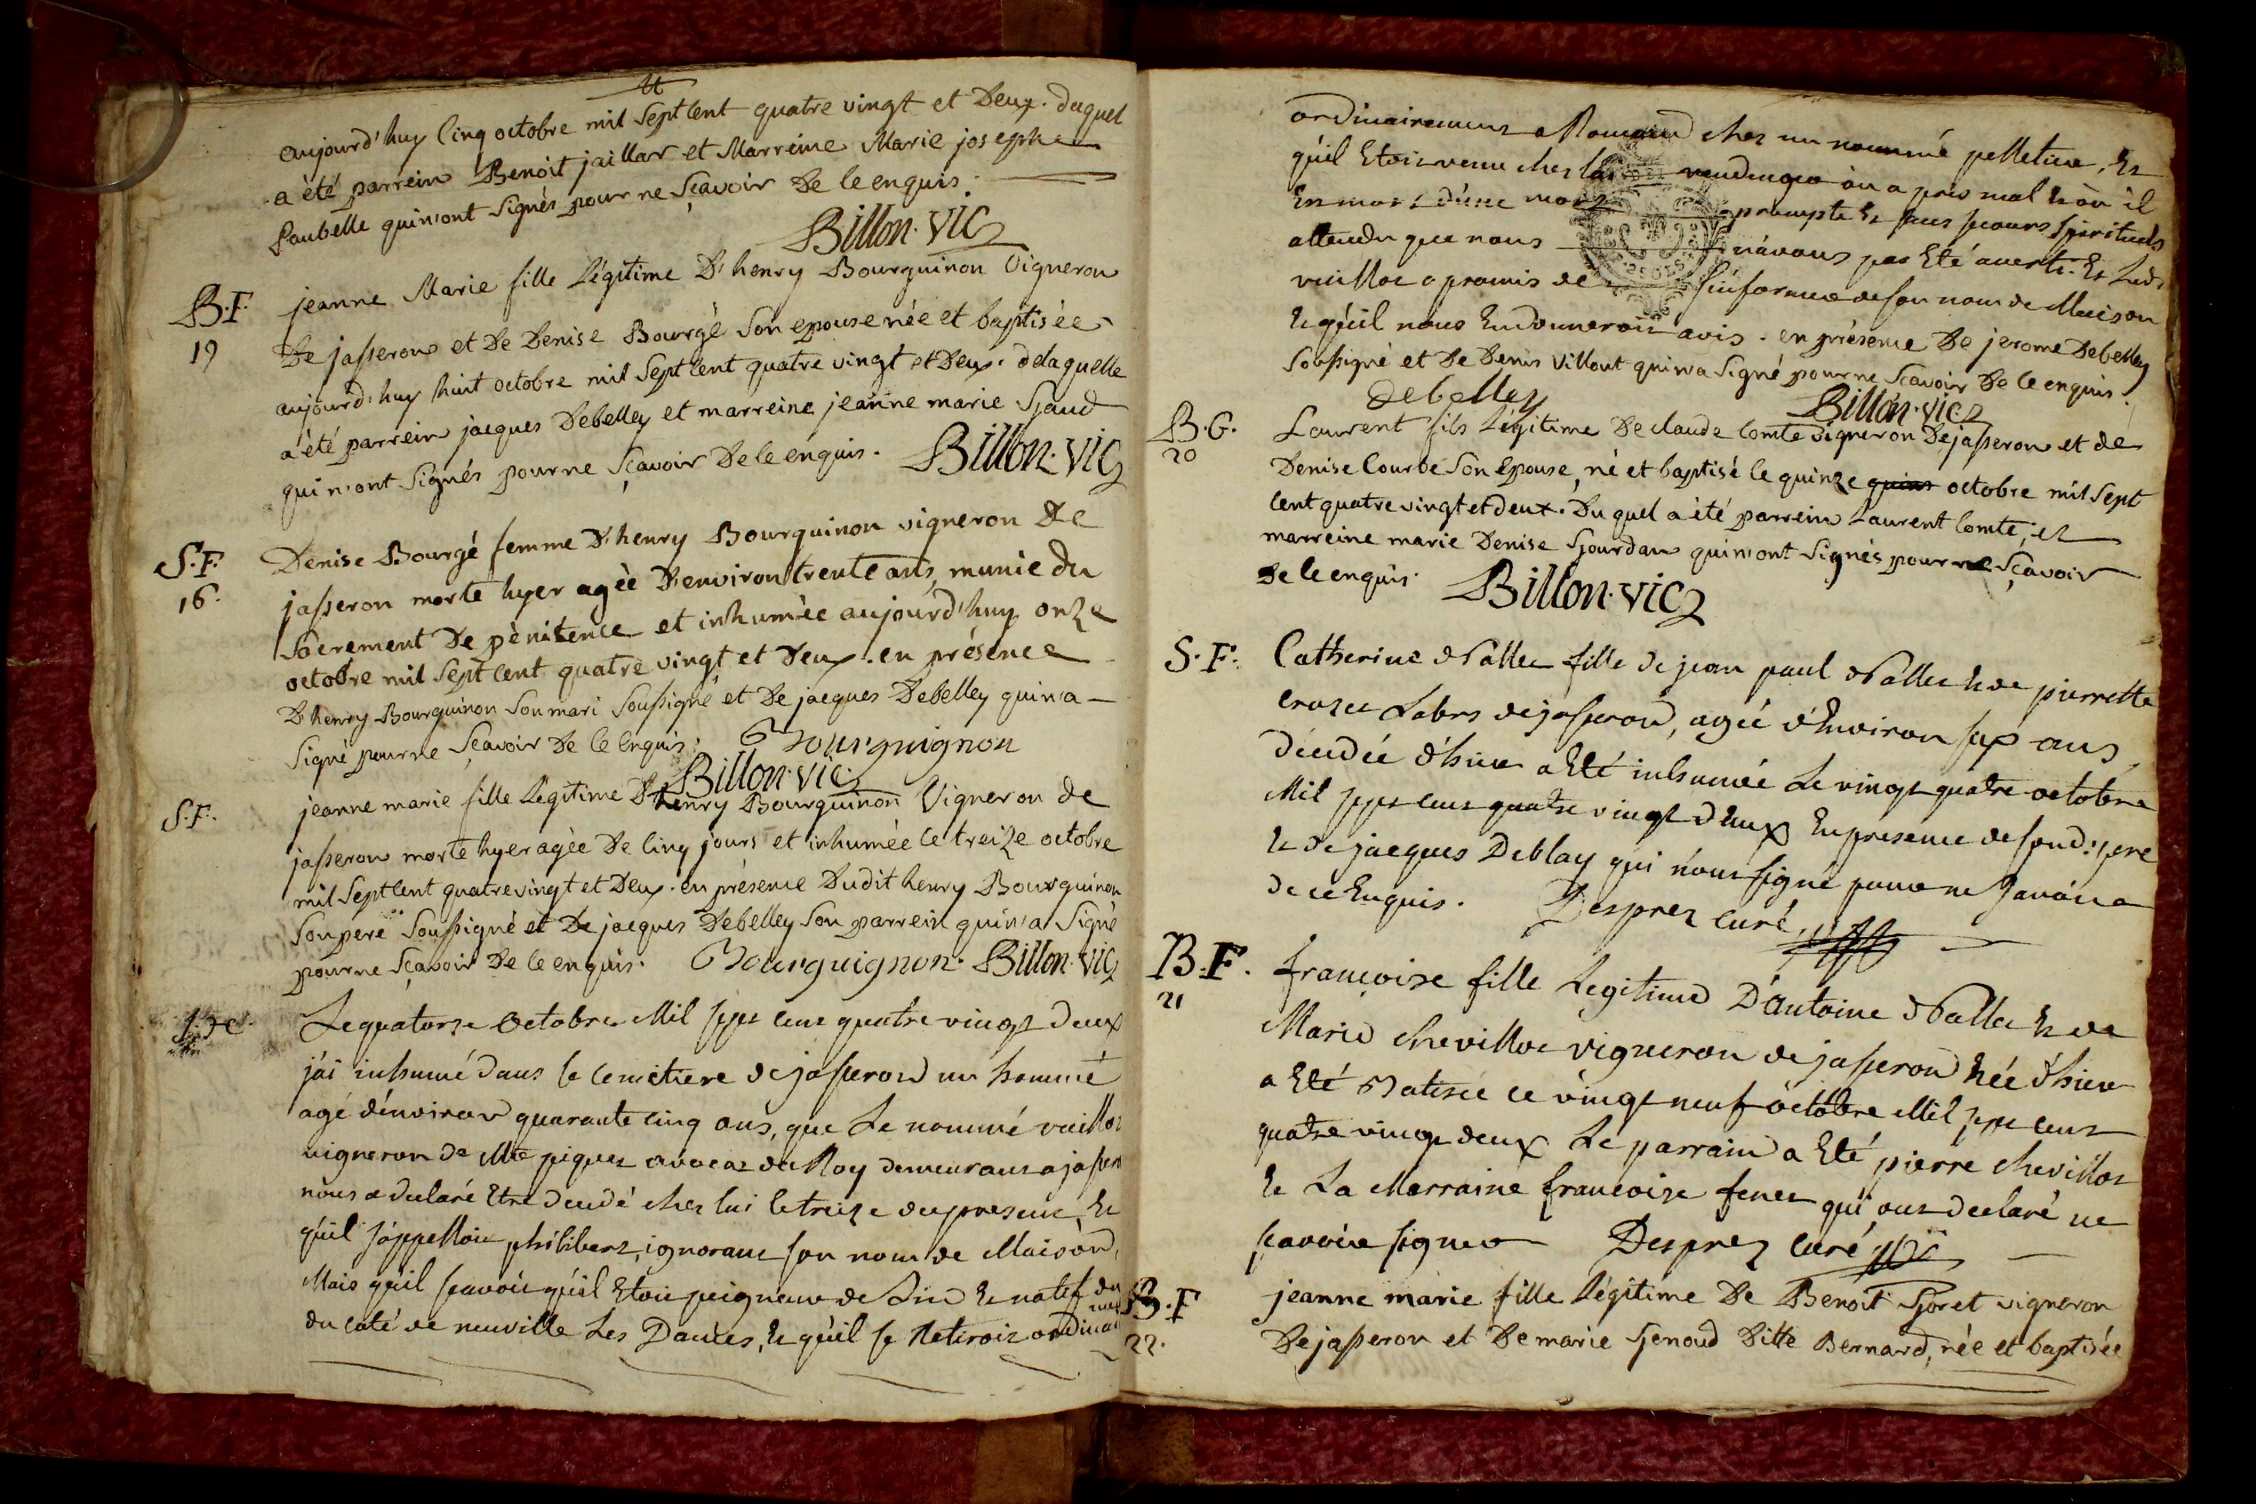 aujourd'huy Cinq octobre mil Sept Cent quatre vingt et Deux. duquel
a été parrein Benoit jaillar et Marreine Marie josephe
Paubelle quin'ont Signés pour ne sçavoir De Ce enquis.
Billon. vic
B.F.
19
jeanne Marie fille Légitime D'henry Bourguinon Vigneron
De jasseron et De Denise Bourgé Son epouse née et baptisée
aujourd'huy huit octobre mil Sept Cent quatre vingt et Deux. de laquelle
a été parrein jacques Debelley et marreine jeanne marie
quin'ont Signés pour ne sçavoir De Ce enquis. Billon. vic
S.F.
16.
Denise Bourgé femme D'henry Bourguinon vigneron De
jasseron morte hyer agée D'environ trente ans, munie du
Sacrement De pénitence et inhumée aujourd'huy onze
octobre mil Sept Cent quatre vingt et Deux. en présence
D'henry Bourguinon Son mari Soussigné et De jacques Debelley quin'a
Signé pour ne Sçavoir De Ce Enquis. Bourguignon
Billon. vic.
S.F.
jeanne marie fille Légitime D'henry Bourguinon Vigneron de
jasseron morte hyer agée De Cinq jours et inhumée Ce treize octobre
mil Sept Cent quatre vingt et Deux. en présence Dudit henry Bourguinon
Son pere Soussigné et De jacques Debelley Son parrein quin'a Signé
pour ne Sçavoir De Ce enquis. Bourguignon. Billon. vic
Le quatorze Octobre Mil sept cent quatre vingt deux
j'ai inhumé dans le Cemetiere de jasseron un homme
agé d'environ quarante cinq ans, que Le nommé vuillot
vigneron de Mte piquet avocat du Roy demeurant a jasseron
nous a declaré Etre decedé chez lui le treize du present, Et
qu'il s'appelloit philibert, ignorant son nom de Maison,
Mais qu'il scavoit qu'il Etoit peigneur de Et natif du
du coté de neuville Les Dames, Et qu'il se Retiroit ordinai
ordinairement a chez un nommé pelletier, Et
qu'il Etoit venu chez lui vendenger où a pris mal Et où il
Est mort d'une mort prompte Et sans secours spirituels
attendu que nous n'avons pas Eté averti. Et Ledt
vuillot a promis de s'informer de son nom de Maison
Et qu'il nous En donneroit avis. en présence De jerome Debelley
Soussigné et De Denis Villout quin'a Signé pour ne Sçavoir De Ce enquis.
Debelley
Billon. vic
B.G.
20
Laurent fils Légitime De claude Comte vigneron De jasseron et de
Denise Courbe Son Epouse, né et baptisé le quinze octobre mil Sept
Cent quatre vingt et deux. Du quel a été parrein Laurent Comte, et
marreine marie Denise Sjourdan quin'ont Signés pour ne Sçavoir
De Ce enquis. Billon. vic
S.F.
Catherine Pallet fille de jean paul Pallet Et de pierrette
crozet Labrs de jasseron, agée d'Environ six ans,
décédée d'hier a Eté inhumée Le vingt quatre octobre
Mil sept cent quatre vingt deux En presence de sond: pere
Et de jacques Deblay qui n'ont signé pour ne Scavoir
de ce Enquis. Desprez curé.
B.F.
21
françoise fille Legitime D'Antoine Pallet Et de
Marie chevillot vigneron de jasseron née d'hier
a Eté Batisée ce vingt neuf octobre Mil sept cent
quatre vingt deux Le parrain a Eté pierre chevillot
Et La Marraine françoise fenet qui ont declaré ne
scavoir signer Desprez curé
B.F
22.
jeanne marie fille Légitime De Benoit Sjoret vigneron
De jasseron et De marie Sjenoud Ditte Bernard, née et baptisée